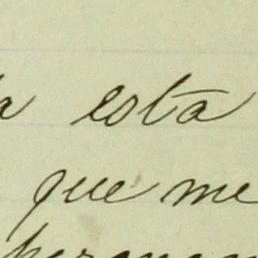 esta
que me